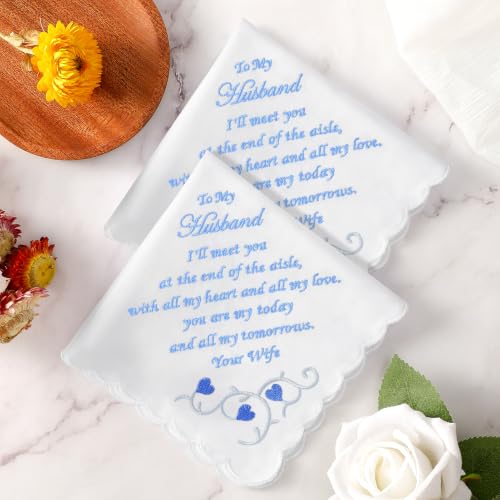 To My
Husband
I'll meet you
at the end of the aisle,
with all my heart and all my love.
you are my today
and all my tomorrows.
Your Wife
To My
Husband
I'll meet you
at the end of the aisle,
with my heart and all my love.
you are my today
tomorrows.
Wife